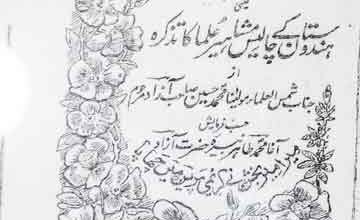 یعنی
ہندوستان کے چالیس مشاہیر علما کا تذکرہ
از
جناب شمس العلما مولینا محمد حسین صاحب آزاد مرحوم
حسب فرمایش
آغا محمد طاہر نبیرہ حضرت آزاد
کریمی پریس میں